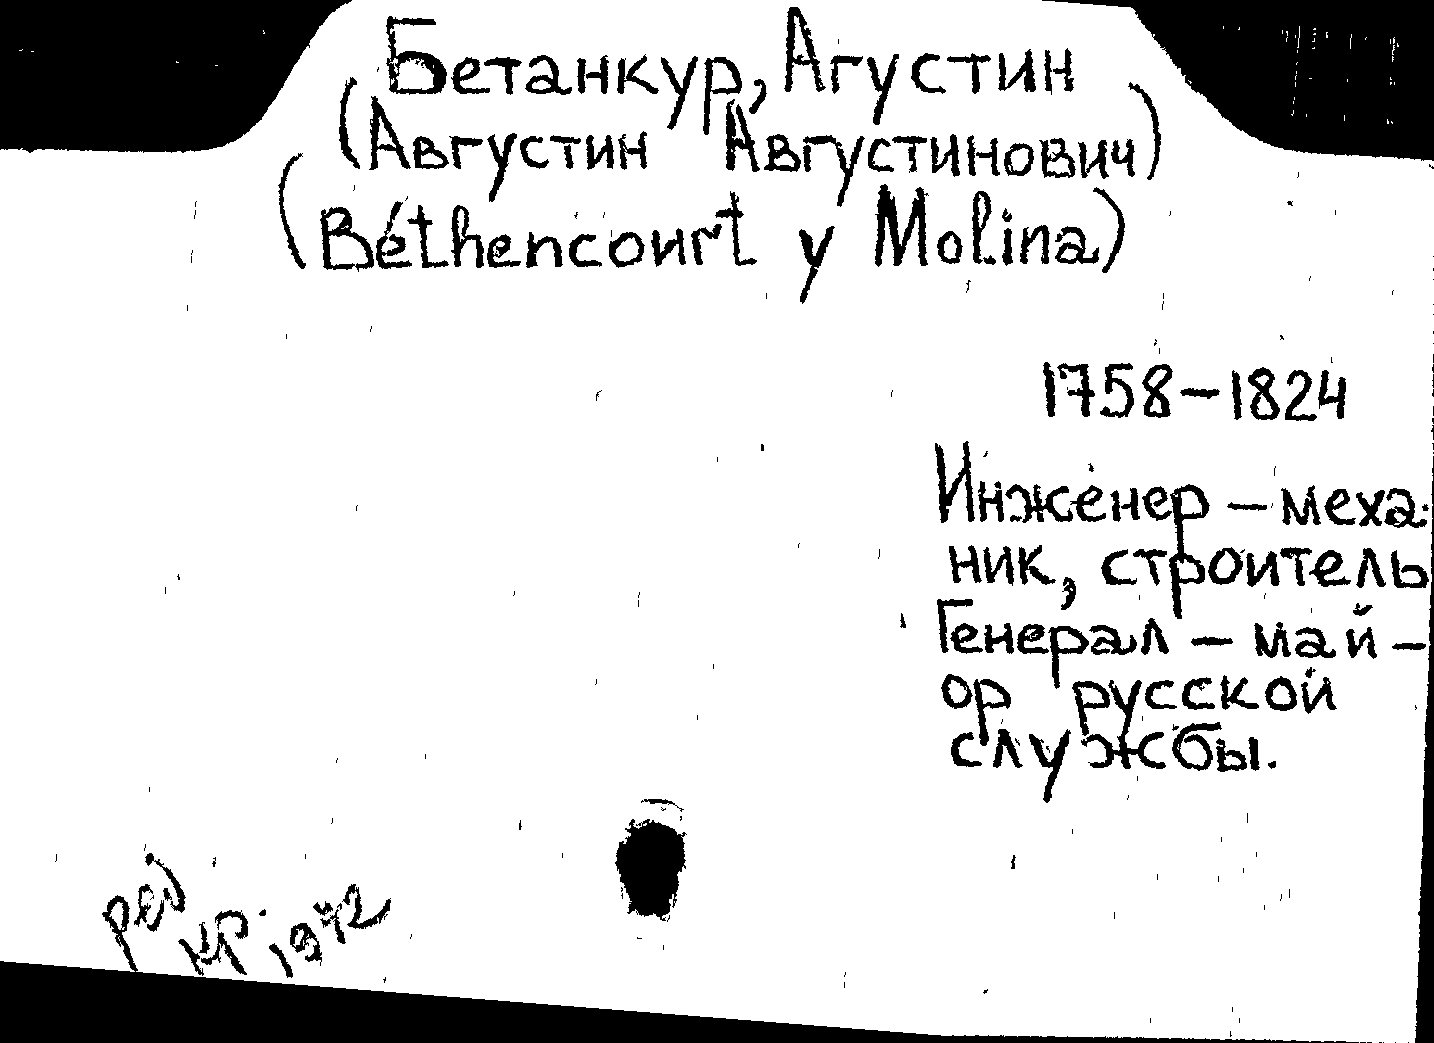 Бетанкур, Агустин
(Августин Августинович)
(Béthencourt y Molina)
1758–1824
Инженер – меха-
ник, строитель
Генерал – май –
ор русской
службы.
ред
кр. 1972